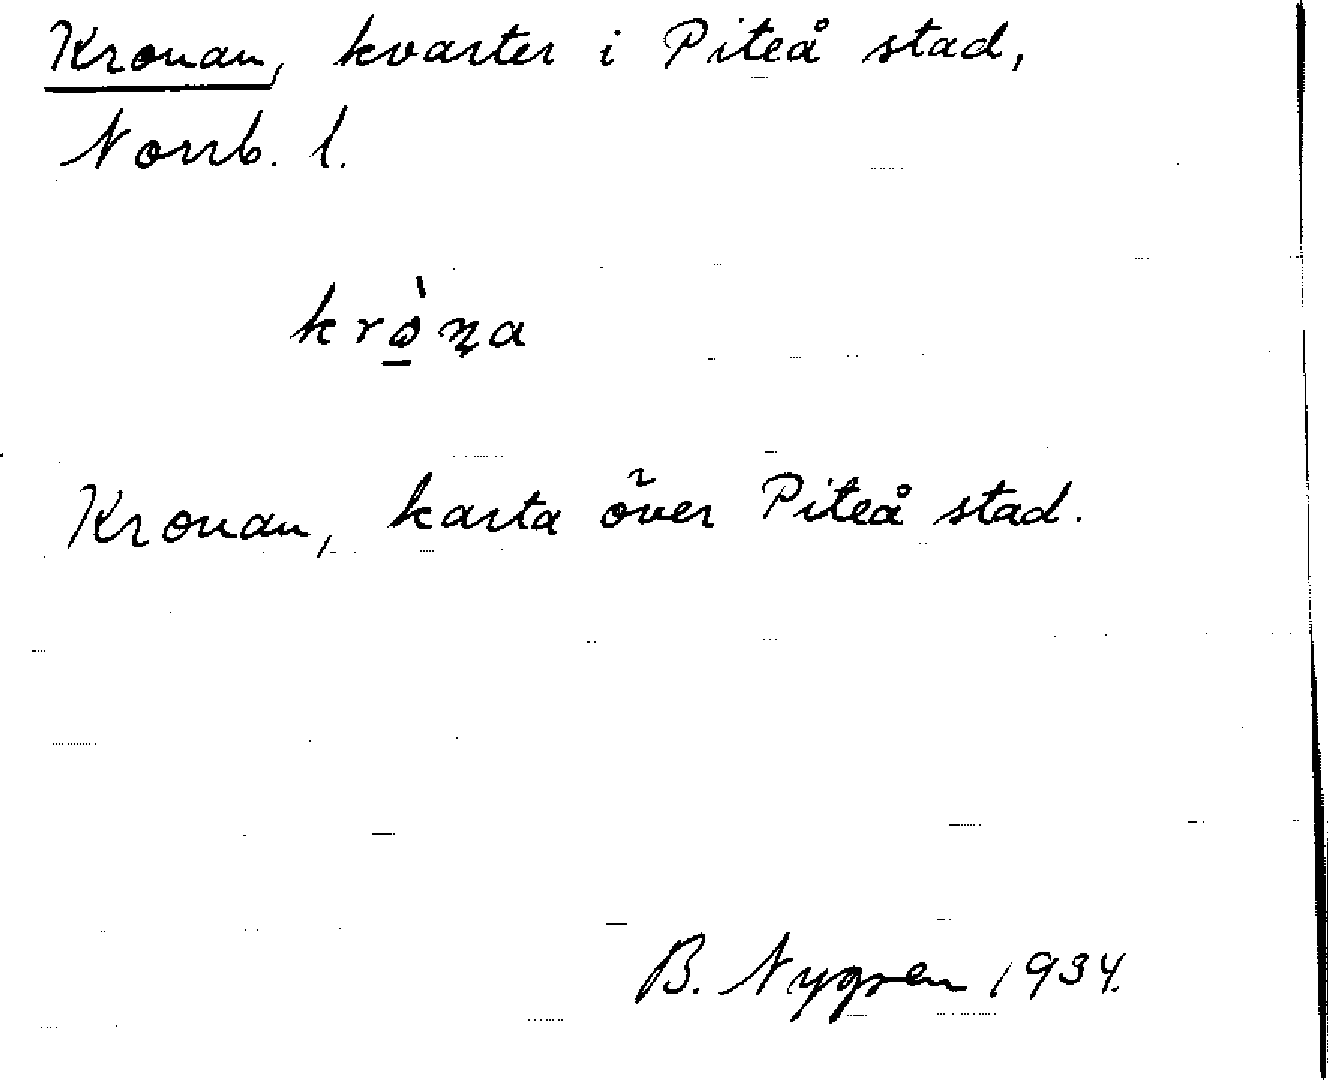 Kronan, kvarter i Piteå stad,
Norrb. l.
krò̱n̨a
Kronan, karta över Piteå stad.
B. Nygren 1934.